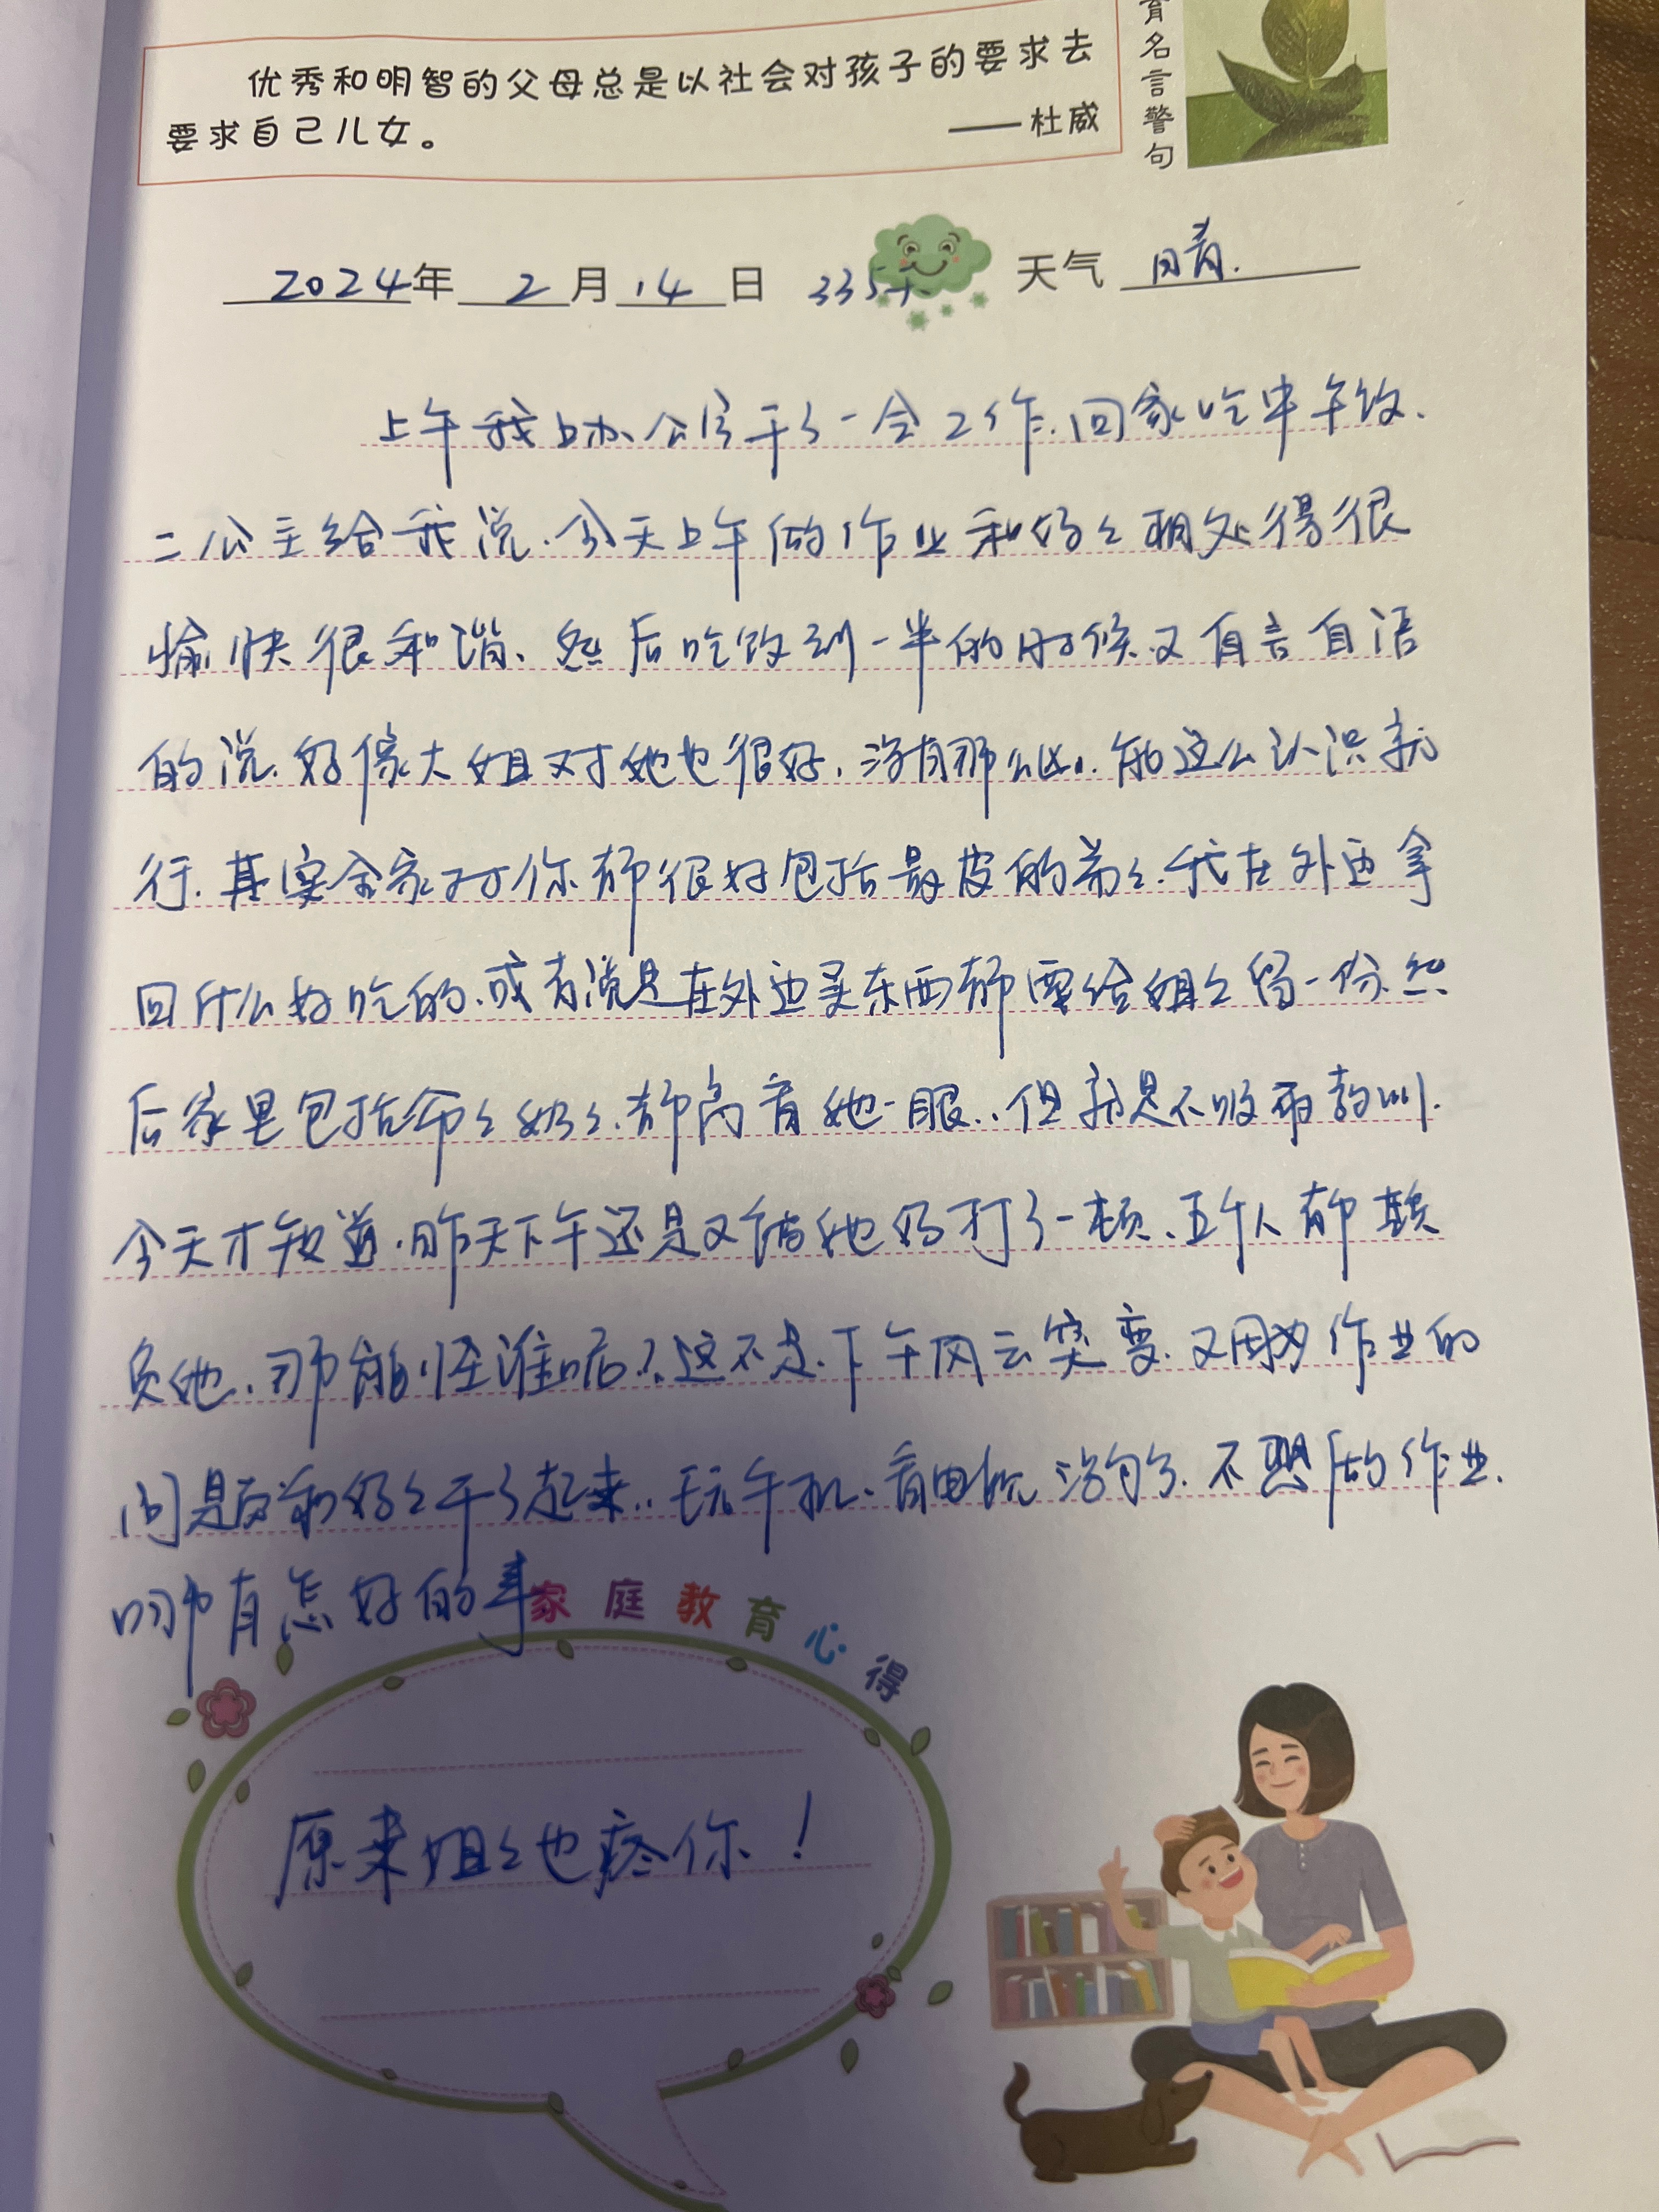 优秀和明智的父母总是以社会对孩子的要求去
要求自己儿女。 ——杜威
育名言警句
2024年 2月14日 335天 天气 晴.
上午我上办公室干了一会工作.回家吃中午饭.
二公主给我说.今天上午做作业和妈々相处得很
愉快很和谐、然后吃饭到一半的时候又自言自语
的说.好像大姐对她也很好,没有那么凶.能这么认识就
行.其实全家对你都很好包括最皮的弟々.我在外边拿
回什么好吃的.或者说是在外边买东西都要给姐々留一份.然
后家里包括爷々奶々.都高看她一眼..但就是不吸取教训.
今天才知道.昨天下午还是又被她妈打了一顿、五个人都欺
负她.那能怪谁呢?.这不是.下午风云突变.又因为作业的
问题和妈々干了起来..玩手机、看电视没句了.不想做作业.
哪有怎好的事
家庭教育心得
原来姐々也疼你!